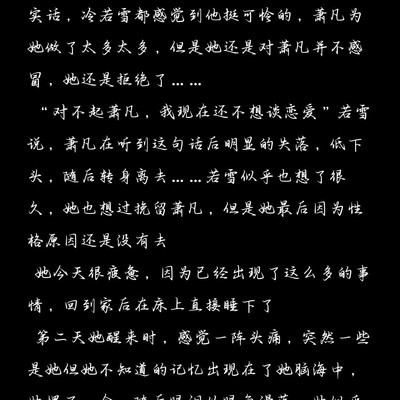 实话，冷若雪都感觉到他挺可怜的，萧凡为
她做了太多太多，但是她还是对萧凡并不感
冒，她还是拒绝了……
“对不起萧凡，我现在还不想谈恋爱”若雪
说，萧凡在听到这句话后明显的失落，低下
头，随后转身离去……若雪似乎也想了很
久，她也想过挽留萧凡，但是她最后因为性
格原因还是没有去
她今天很疲惫，因为已经出现了这么多的事
情，回到家后在床上直接睡下了
第二天她醒来时，感觉一阵头痛，突然一些
是她但她不知道的记忆出现在了她脑海中，